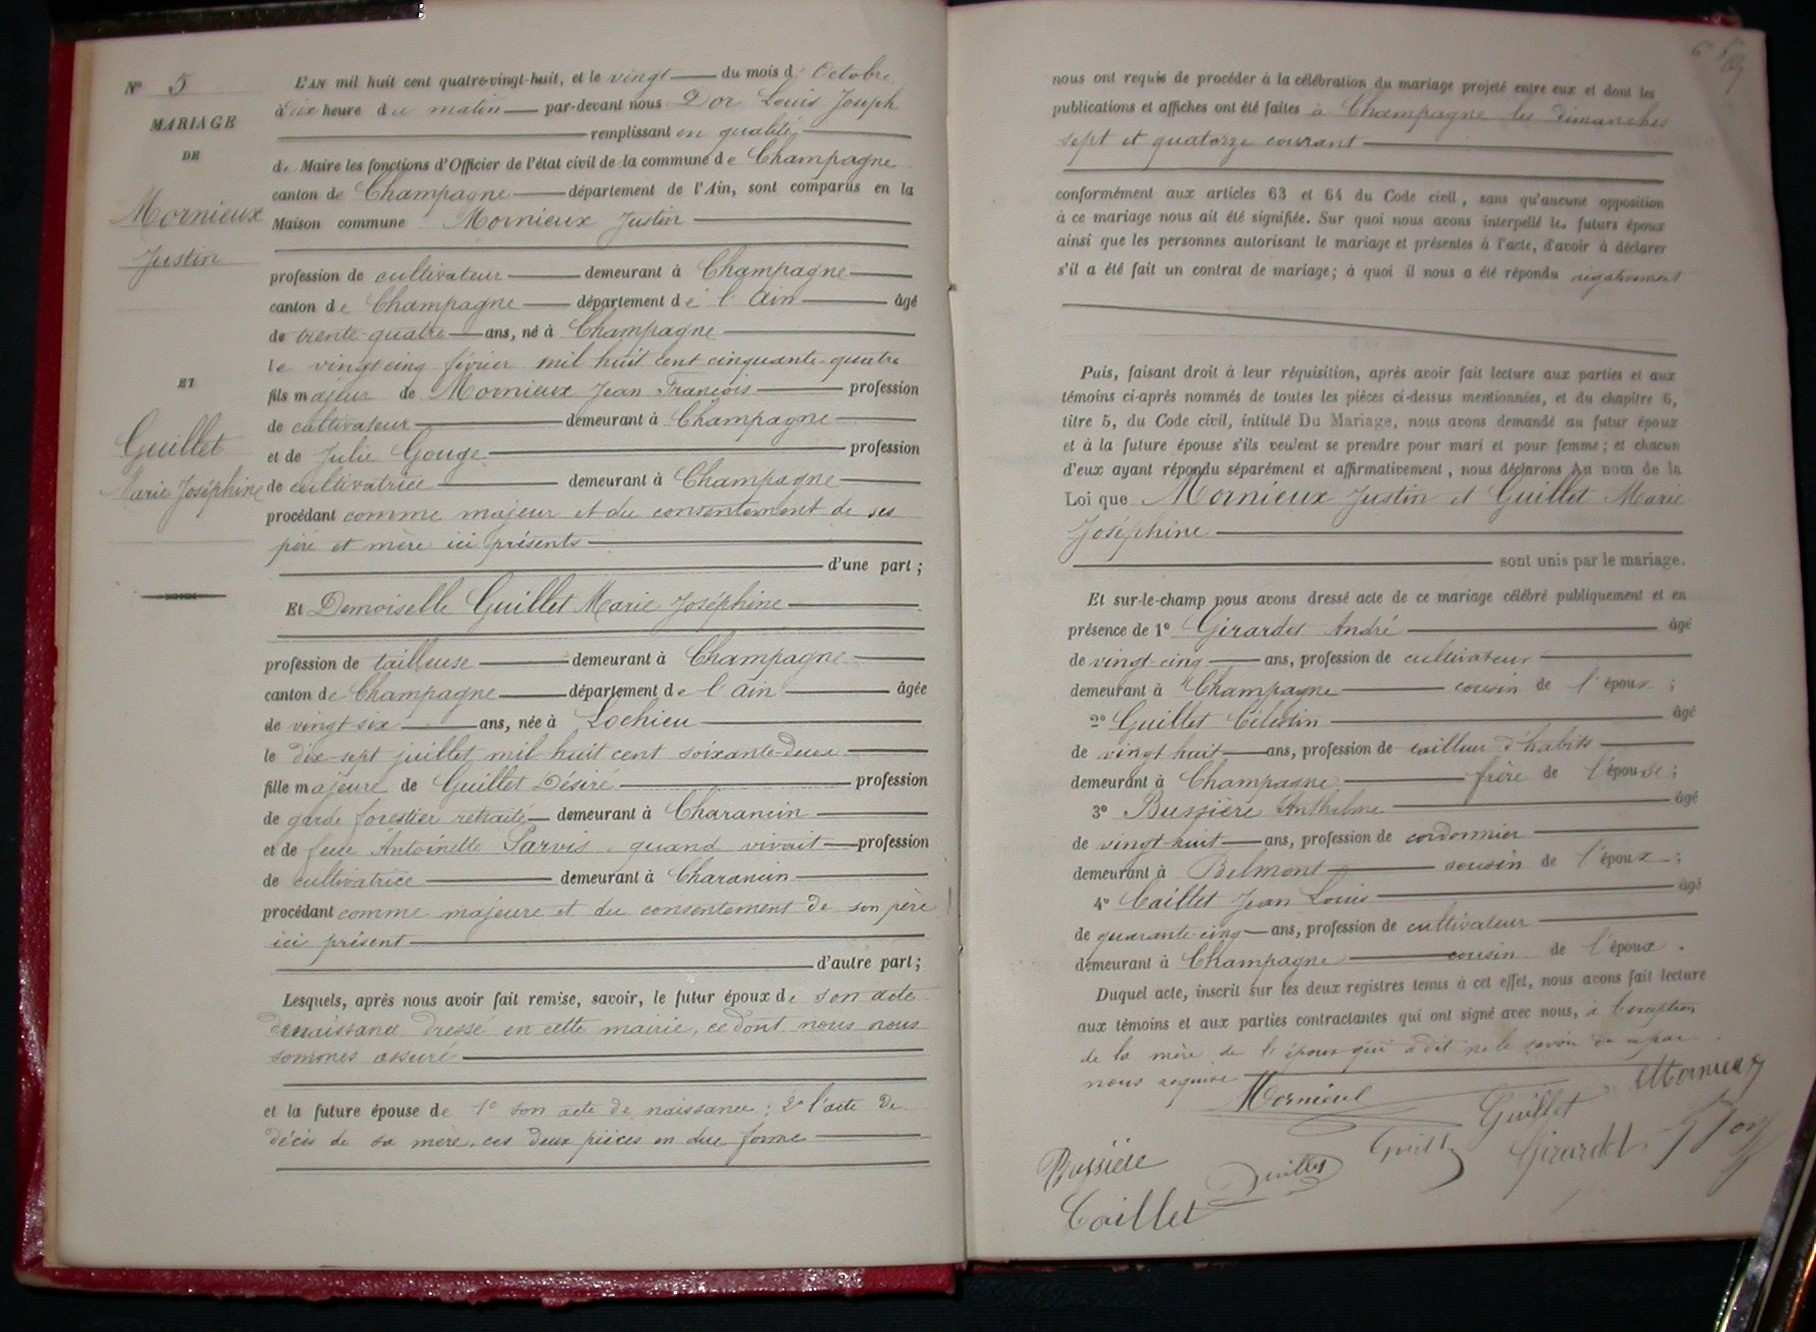 N° 5
MARIAGE
DE
Mornieux
Justin
ET
Guillet
Marie Joséphine
L'AN mil huit cent quatre-vingt-huit, et le vingt du mois d'Octobre
à dix heure du matin par-devant nous Dor Louis Joseph
remplissant en qualité
de Maire les fonctions d'Officier de l'état civil de la commune de Champagne
canton de Champagne département de l'Ain, sont comparus en la
Maison commune Mornieux Justin
profession de cultivateur demeurant à Champagne
canton de Champagne département de l'Ain âgé
de trente-quatre ans, né à Champagne
le vingt cinq février mil huit cent cinquante-quatre
fils majeur de Mornieux Jean François profession
de cultivateur demeurant à Champagne
et de Julie Gouge profession
de cultivatrice demeurant à Champagne
procédant comme majeur et du consentement de ses
père et mère ici présents
d'une part;
Et Demoiselle Guillet Marie Joséphine
profession de tailleuse demeurant à Champagne
canton de Champagne département de l'Ain âgée
de vingt six ans, née à Lochieu
le dix-sept juillet mil huit cent soixante-deux
fille majeure de Guillet Désiré profession
de garde forestier retraité demeurant à Charancin
et de feue Antoinette Parvis quand vivait profession
de cultivatrice demeurant à Charancin
procédant comme majeure et du consentement de son père
ici présent
d'autre part;
Lesquels, après nous avoir fait remise, savoir, le futur époux de son acte
de naissance dressé en cette mairie, ce dont nous nous
sommes assuré
et la future épouse de 1° son acte de naissance; 2° l'acte de
décès de sa mère, ces deux pièces en due forme
nous ont requis de procéder à la célébration du mariage projeté entre eux et dont les
publications et affiches ont été faites à Champagne les dimanches
sept et quatorze courant
conformément aux articles 63 et 64 du Code civil, sans qu'aucune opposition
à ce mariage nous ait été signifiée. Sur quoi nous avons interpellé les futurs époux
ainsi que les personnes autorisant le mariage et présentes à l'acte, d'avoir à déclarer
s'il a été fait un contrat de mariage; à quoi il nous a été répondu négativement
Puis, faisant droit à leur réquisition, après avoir fait lecture aux parties et aux
témoins ci-après nommés de toutes les pièces ci-dessus mentionnées, et du chapitre 6,
titre 5, du Code civil, intitulé Du Mariage, nous avons demandé au futur époux
et à la future épouse s'ils veulent se prendre pour mari et pour femme; et chacun
d'eux ayant répondu séparément et affirmativement, nous déclarons Au nom de la
Loi que Mornieux Justin et Guillet Marie
Joséphine
sont unis par le mariage.
Et sur-le-champ nous avons dressé acte de ce mariage célébré publiquement et en
présence de 1° Girardet André âgé
de vingt-cinq ans, profession de cultivateur
demeurant à Champagne cousin de l'époux;
2° Guillet Célestin âgé
de vingt huit ans, profession de tailleur d'habits
demeurant à Champagne frère de l'épouse;
3° Bussière Anthelme âgé
de vingt-huit ans, profession de cordonnier
demeurant à Belmont cousin de l'époux;
4° Caillet Jean Louis âgé
de quarante-cinq ans, profession de cultivateur
demeurant à Champagne cousin de l'époux.
Duquel acte, inscrit sur les deux registres tenus à cet effet, nous avons fait lecture
aux témoins et aux parties contractantes qui ont signé avec nous, à l'exception
de la mère de l'époux qui a dit ne le savoir de ce par
nous requise
Mornieux Guillet Mornieux
Bussière Guillet Girardet Dor
Caillet